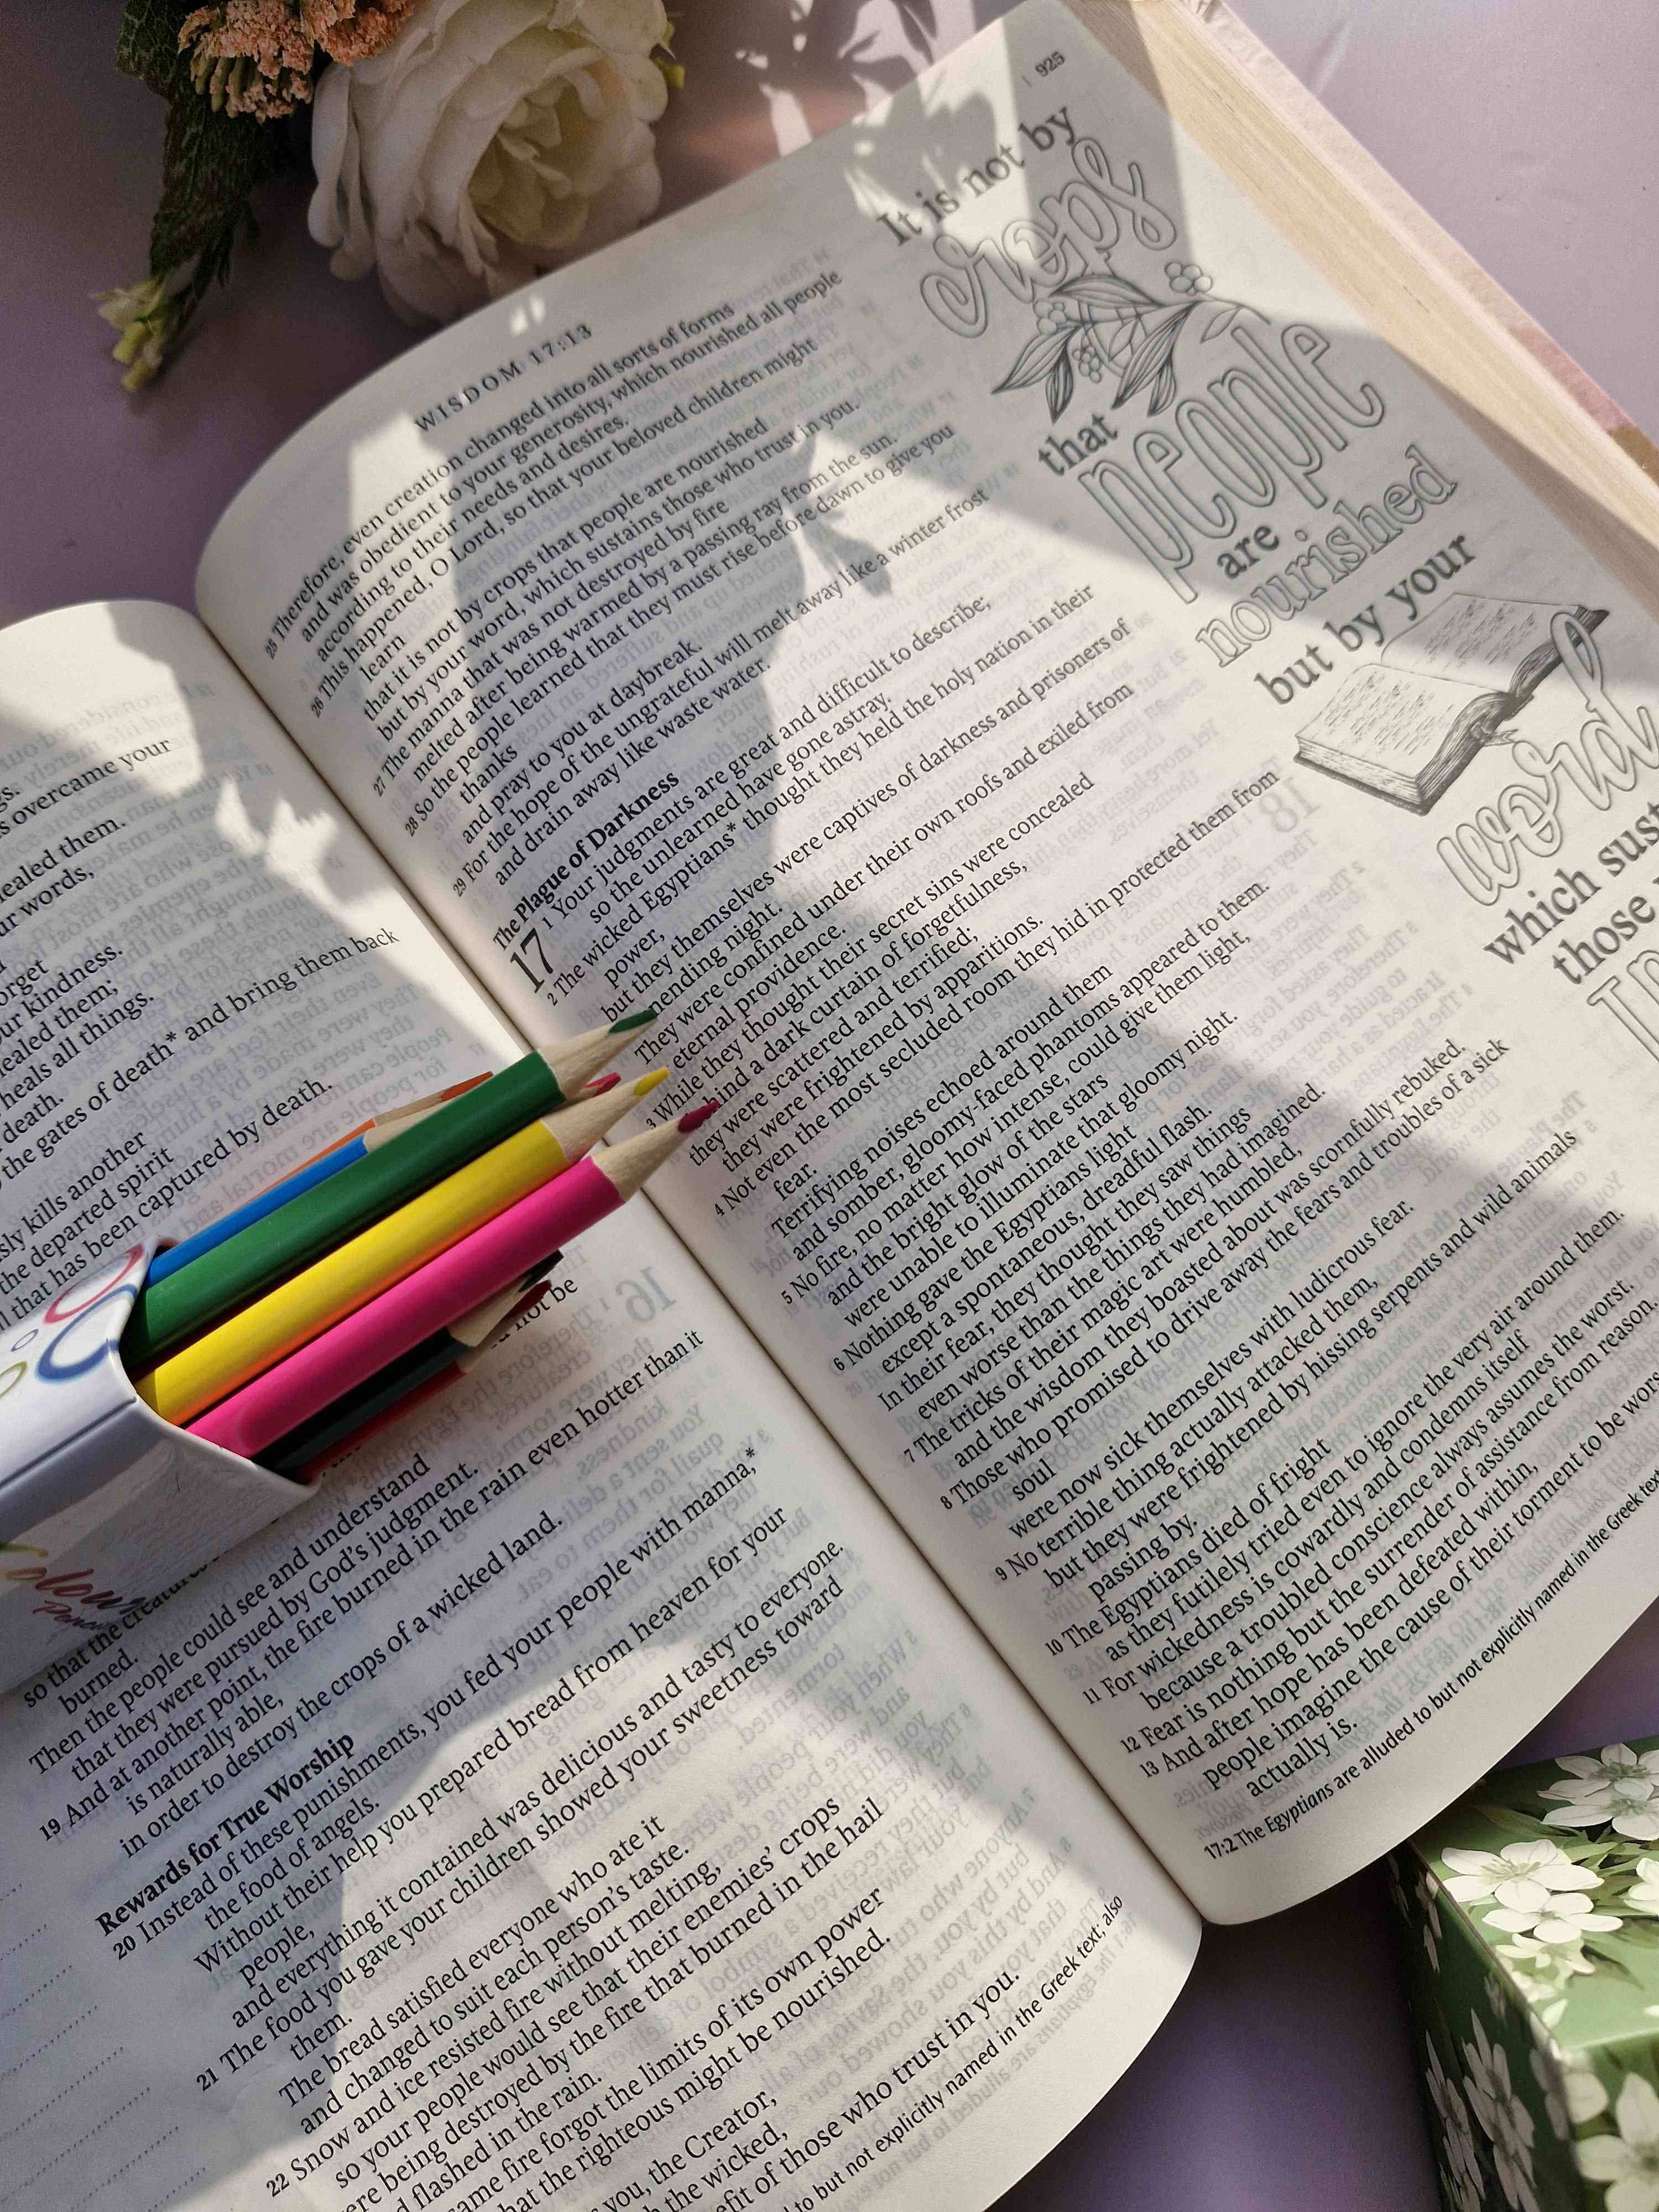 s overcame your
ealed them.
ur words,
orget
our kindness.
ealed them;
heals all things.
death.
the gates of death* and bring them back
sly kills another
the departed spirit
l that has been captured by death.
not be
so that the creatures
burned.
Then the people could see and understand
that they were pursued by God's judgment.
19 And at another point, the fire burned in the rain even hotter than it
is naturally able,
in order to destroy the crops of a wicked land.
Rewards for True Worship
20 Instead of these punishments, you fed your people with manna,*
the food of angels.
Without their help you prepared bread from heaven for your
people,
and everything it contained was delicious and tasty to everyone.
21 The food you gave your children showed your sweetness toward
them.
The bread satisfied everyone who ate it
and changed to suit each person's taste.
22 Snow and ice resisted fire without melting,
so your people would see that their enemies' crops
ere being destroyed by the fire that burned in the hail
d flashed in the rain.
ame fire forgot the limits of its own power
hat the righteous might be nourished.
you, the Creator,
h the wicked,
efit of those who trust in you.
to but not explicitly named in the Greek text; also
Colour
WISDOM 17:13
925
25 Therefore, even creation changed into all sorts of forms
and was obedient to your generosity, which nourished all people
according to their needs and desires.
26 This happened, O Lord, so that your beloved children might
learn
that it is not by crops that people are nourished
but by your word, which sustains those who trust in you.
27 The manna that was not destroyed by fire
melted after being warmed by a passing ray from the sun.
28 So the people learned that they must rise before dawn to give you
thanks
and pray to you at daybreak.
29 For the hope of the ungrateful will melt away like a winter frost
and drain away like waste water.
The Plague of Darkness
17 1 Your judgments are great and difficult to describe;
so the unlearned have gone astray.
2 The wicked Egyptians* thought they held the holy nation in their
power,
but they themselves were captives of darkness and prisoners of
nending night.
They were confined under their own roofs and exiled from
eternal providence.
3 While they thought their secret sins were concealed
hind a dark curtain of forgetfulness,
they were scattered and terrified;
they were frightened by apparitions.
4 Not even the most secluded room they hid in protected them from
fear.
Terrifying noises echoed around them
and somber, gloomy-faced phantoms appeared to them.
5 No fire, no matter how intense, could give them light,
and the bright glow of the stars
were unable to illuminate that gloomy night.
6 Nothing gave the Egyptians light
except a spontaneous, dreadful flash.
In their fear, they thought they saw things
even worse than the things they had imagined.
7 The tricks of their magic art were humbled,
and the wisdom they boasted about was scornfully rebuked.
8 Those who promised to drive away the fears and troubles of a sick
soul
were now sick themselves with ludicrous fear.
9 No terrible thing actually attacked them,
but they were frightened by hissing serpents and wild animals
passing by.
10 The Egyptians died of fright
as they futilely tried even to ignore the very air around them.
11 For wickedness is cowardly and condemns itself
because a troubled conscience always assumes the worst.
12 Fear is nothing but the surrender of assistance from reason.
13 And after hope has been defeated within,
people imagine the cause of their torment to be wors
actually is.
17:2 The Egyptians are alluded to but not explicitly named in the Greek text
It is not by
crops
that
people
are
nourished
but by your
word
which sust
those